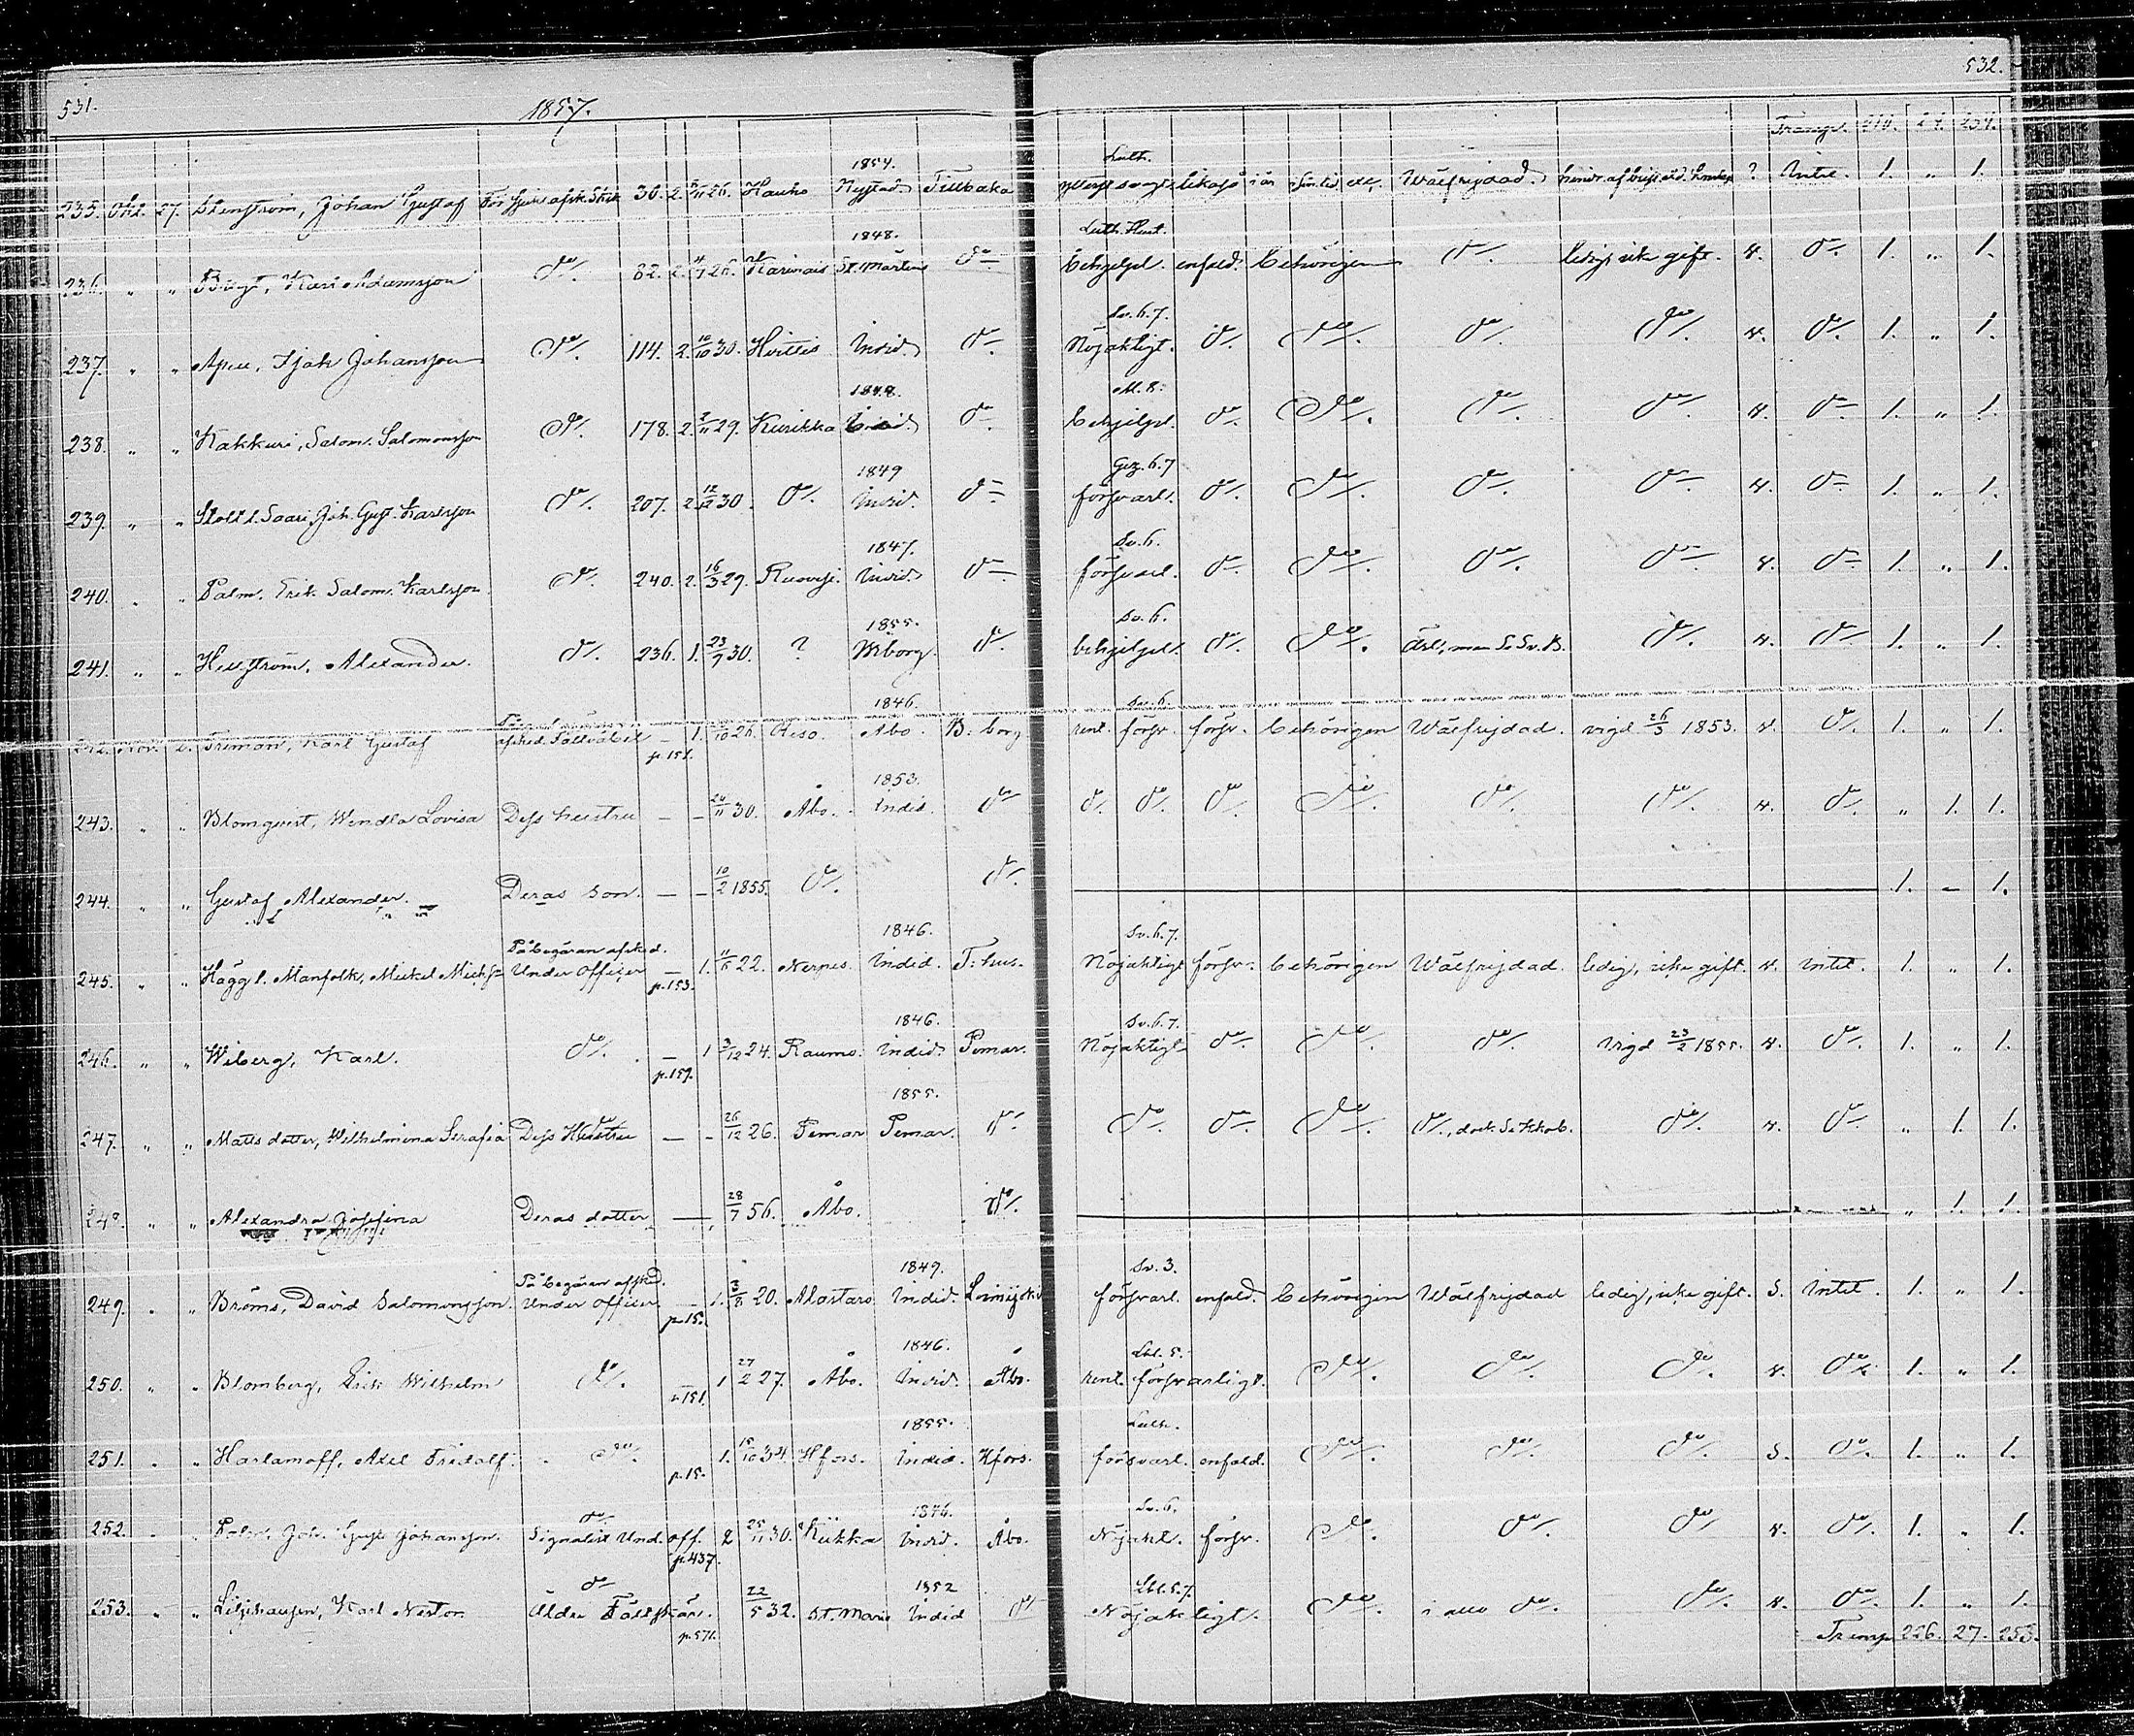 531. 1857. 532.
Transp. 24. 234.
1854. Luth.
235. Okt. 27. Stenström, Johan Gustaf 30. 2. 26. Hauho Nystad Tillbaka Wälfrejdad. ? Intet. 1. „ 1.
1848. Luth. Hust.
236. „ „ Karl Adamsson d:o 82. 2. 26. Karinais St. Mårtens d:o behjelpl. enfald. behörigen d:o ledig, icke gift. 4. d:o 1. „ 1.
Sv. 6. 7.
237. „ „ Johansson d:o 114. 2. 10/10 30. Hvittis Indid. d:o Nöjaktigt. d:o d:o d:o d:o 4. d:o 1. „ 1.
1848. M. 8.
238. „ „ Kakkuri, Salom. Salomonsson d:o 178. 2. 2/11 29. Kurikka Indid. d:o behjelpl. d:o d:o d:o d:o 4. d:o 1. „ 1.
1849 6. 7
239. „ „ Stolt l. Saari, Joh. Gust. Karlsson d:o 207. 2. 12/12 30. d:o Indid. d:o försvarl. d:o d:o d:o d:o 4. d:o 1. „ 1.
1847. Sv. 6.
240. „ „ Palm, Erik Salom. Karlsson d:o 240. 2. 16/3 29. Ruovesi Indid. d:o försvarl. d:o d:o d:o d:o 4. d:o 1. „ 1.
1855. Sv. 6.
241. „ „ Hellström, Alexander. d:o 236. 1. 23/7 30. ? Wiborg. d:o behjelpl. d:o d:o men S. Sv. B. d:o 4. d:o 1. „ 1.
1846. Sv. 6.
242. Nov. 2. Friman, Karl Gustaf afsked. — 1. 26. Åbo. B:borg rent. försv. försv. behörigen Wälfrejdad. vigd 26/5 1853. 4. d:o 1. „ 1.
p. 151.
1853.
243. „ „ Blomqvist, Wendla Lovisa Dess hustru — — 24/11 30. Åbo. Indid. d:o d:o d:o d:o d:o d:o d:o 4. d:o „ 1. 1.
244. „ „ Gustaf Alexander. Deras son. — — 10/2 1855. d:o d:o 1. – 1.
På begäran afsked. 1846. Sv. 6. 7.
245. „ „ Hägg l. Manfolk, Mickel Mickss. Under Officer — 1. 22. Nerpes Indid. T:hus. Nöjaktigt försv. behörigen Wälfrejdad. ledig, icke gift. 4. intet. 1. „ 1.
p. 153.
1846. Sv. 6. 7.
246. „ „ Wiberg, Karl. d:o — 1 3/12 24. Raumo. Indid. Pemar. Nöjaktigt d:o d:o d:o Vigd 23/2 1855. 4. d:o 1. „ 1.
p. 159.
1855.
247. „ „ Matts dotter, Wilhelmina Serafia Dess Hustru — – 26/12 26. Pemar Pemar. d:o d:o d:o d:o d:o, dock d:o 4. d:o „ 1. 1.
248. „ „ Alexandra Josefina Deras dotter — 28/7 56. Åbo. d:o „ 1. 1.
På begäran afsked. 1849. Sv. 3.
249. „ „ Bröms, David Salomonsson. Under Officer — 1. 3/8 20. Alastaro Indid. försvarl. enfald. behörigen Wälfrejdad ledig, icke gift. 3. intet. 1. „ 1.
p. 15.
1846. Lbl. 5.
250. „ „ Blomberg, Erik Wilhelm d:o — 1 27/2 27. Åbo. Indid. Åbo. rent. försvarligt. d:o d:o d:o 4. d:o 1. „ 1.
p. 151.
1855. Luth.
251. „ „ Harlamoff, Axel Fridolf. d:o 1. 15/10 34. Hfors. Indid. Hfors. försvarl. enfald. d:o d:o d:o 3. d:o 1. „ 1.
p. 15.
d:o 1846. Sv. 6.
252. „ „ Joh. Gust. Johansson. Signalist Und. off. 2 25/11 30. Kiikka Indid. Åbo. Nöjakt. försv. d:o d:o d:o 4. d:o 1. „ 1.
p. 437.
d:o 1852 Lbl. 5. 7.
253. „ „ Karl Nestor Äldre Fältskär. 22/5 32. St. Marie Indid d:o Nöjaktigt. d:o i allo d:o d:o 4. d:o 1. „ 1.
p. 571.
Transp. 226. 27. 253.